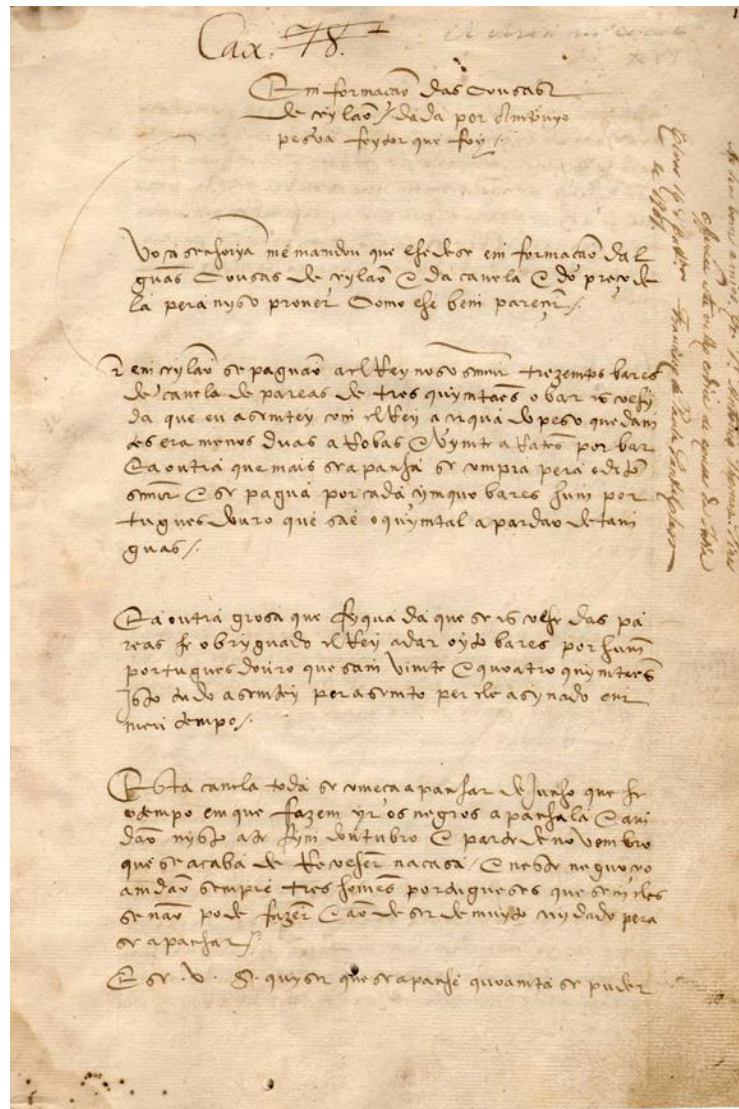 Cax. 78.
Em formação das Cousas
de ceylão / dada por Amtonyo
pesoa feytor que foy /.
Vosa senhorya me mandou que lhe dese em formação dal
guas Cousas de ceylão E da canela E do preço de
la pera nyso prover Como lhe bem parecer /.
em ceylão se paguão a elRey noso sñor trezemtos bares
de canela de pareas de tres quymtaes o bar escolhy
da que eu asemtey com elRey a cerqua do peso que dam
tes era menos duas aRobas E vymte aRates por bar
E a outra que mais se apanha se compra pera o dito
sñor E se pagua por cada cymquo bares hum por
tugues douro que sae o quymtal a pardao de tam
guas /.
E a outra grosa que fyqua da que se escolhe das pa
reas he obryguado elRey a dar oyto bares por hum
portugues douro que sam vimte E quoatro quymtaes
Isto tudo asemtey per asemto per ele asynado em
meu tempo /.
Esta canela toda se comeca apanhar de Junho que he
o tempo em que fazem yr os negros apanhala E am
dão nysto ate fym doutubro E parte de novembro
que se acaba de Recolher na casa / E neste neguoceo
amdão sempre tres homes portugueses que sem eles
se não pode fazer E ão de ser de muyto cuydado pera
se apanhar /.
E se . V . S . quyser que se apanhe quoamta se puder